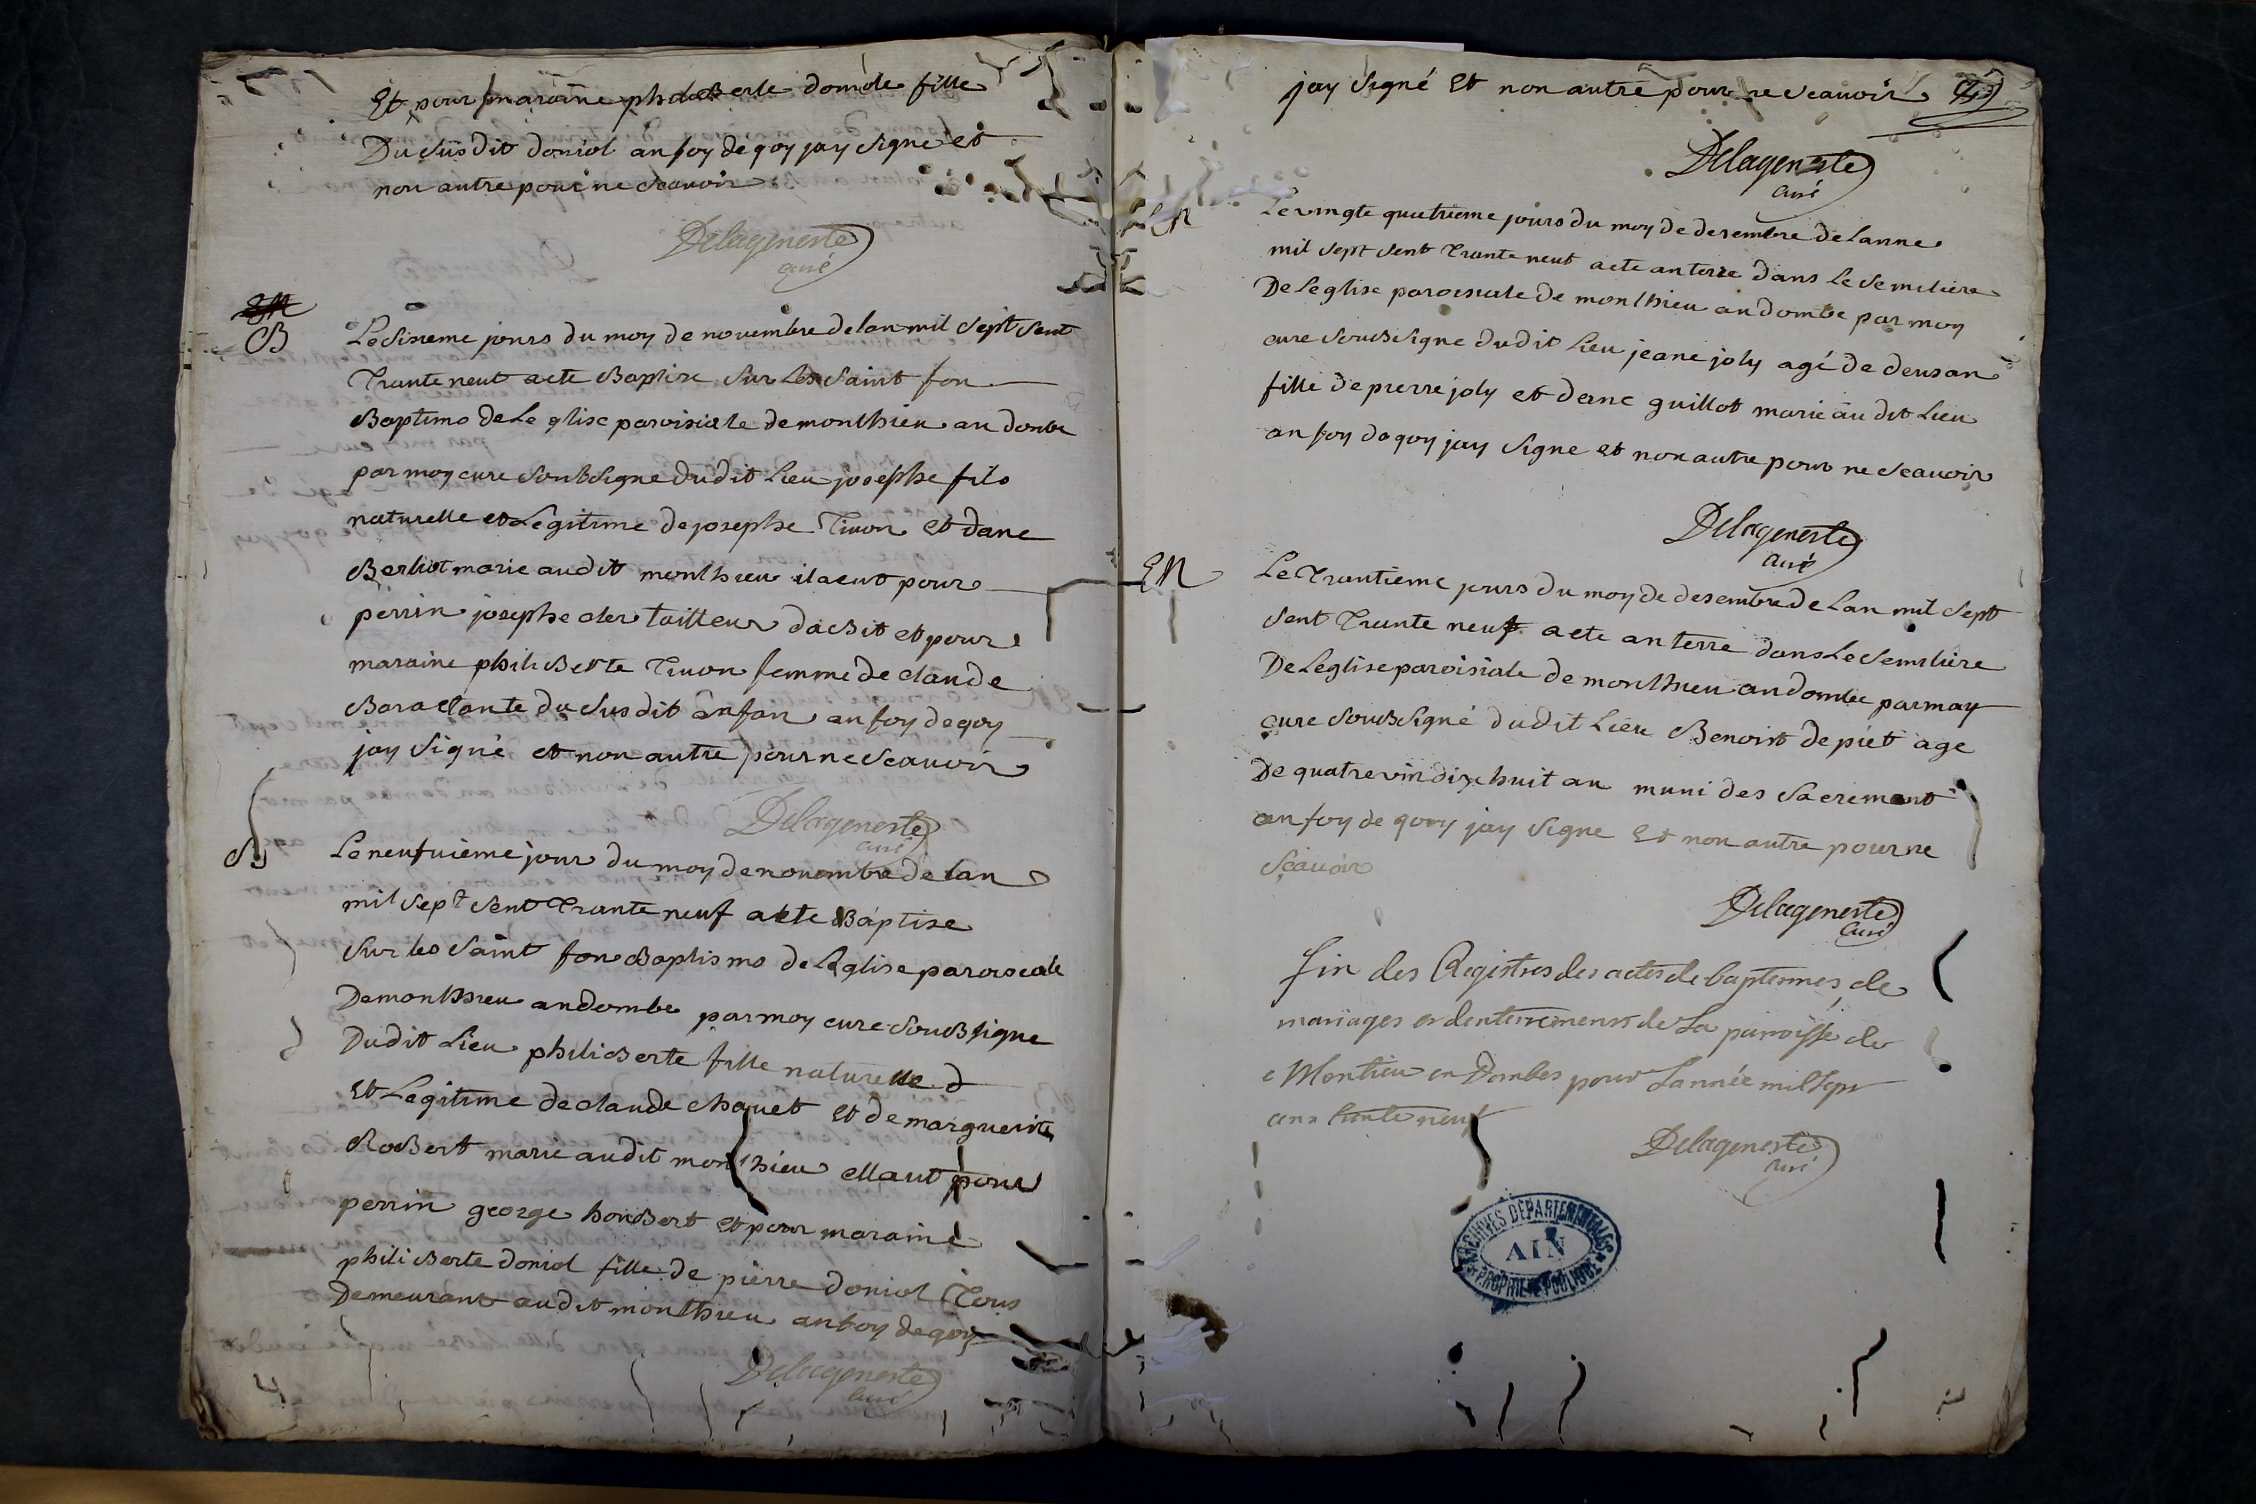 Et pour maraine philiberte doniole fille
Du susdit doniol an foy de qoy jay signe et
non autre pour ne scavoir
Delageneste
curé
B
Le sixieme jours du moy de novembre de lan mil sept sent
Trante neuf aete Baptize sur les saint fon
Baptimo de Leglise paroisiale de monthieu an dombe
par moy cure soubsigne dudit Lieu josephe fils
naturelle et Legitime de josephe Tivon et dane
Berliot marie audit monthieu il aeut pour
perrin josephe tailleur dabit et pour
maraine philiBerte Tivon femme de claude
Bara tante du susdit anfan an foy de qoy
jay signé et non autre pour ne scavoir
Delageneste
curé
B
Le neufvieme jour du moy de novembre de lan
mil sept sent Trante neuf aete Baptise
sur les saint fon Baptismo de Leglise paroiseale
De monthieu an dombe par moy cure souBsigne
Dudit Lieu philiBerte fille naturelle
Et Legitime de claude chavet et de marguerite
RoBert marie audit monthieu ellaut pour
perrin george honBert et pour maraine
philiBerte doniol fille de pierre doniol Tous
Demeurant audit monthieu an foy de qoy
Delageneste
curé
jay signé Et non autre pour ne scavoir
Delageneste
curé
EN
Le vingte quatrieme jours du moy de desembre de Lanne
mil sept sent Trante neuf aete anterre dans Le semitiere
De Leglise paroisiale de monthieu an dombe par moy
cure souBsigne dudit Lieu jeane joly agé de deus an
fille de pierre joly et guillot marie audit Lieu
an foy de qoy jay signe et non autre pour ne scavoir
Delageneste
curé
EN
Le Trantieme jours du moy de desembre de Lan mil sept
sent Trante neuf aete anterre dans Le semitiere
De Leglise paroisiale de monthieu an dombe par moy
cure souBsigné dudit Lieu Benoist depiet age
De quatre vin dix huit an muni des sacremant
an foy de qoy jay signe Et non autre pour ne
scavoir
Delageneste
curé
fin des Registres des actes de baptesmes, de
mariages et denterremens de La paroisse de
Montieu en Dombes pour Lannée mil sept
cens trente neuf
Delageneste
curé
ARCHIVES DÉPARTEMENTALES
AIN
PROPRIÉTÉ PUBLIQUE